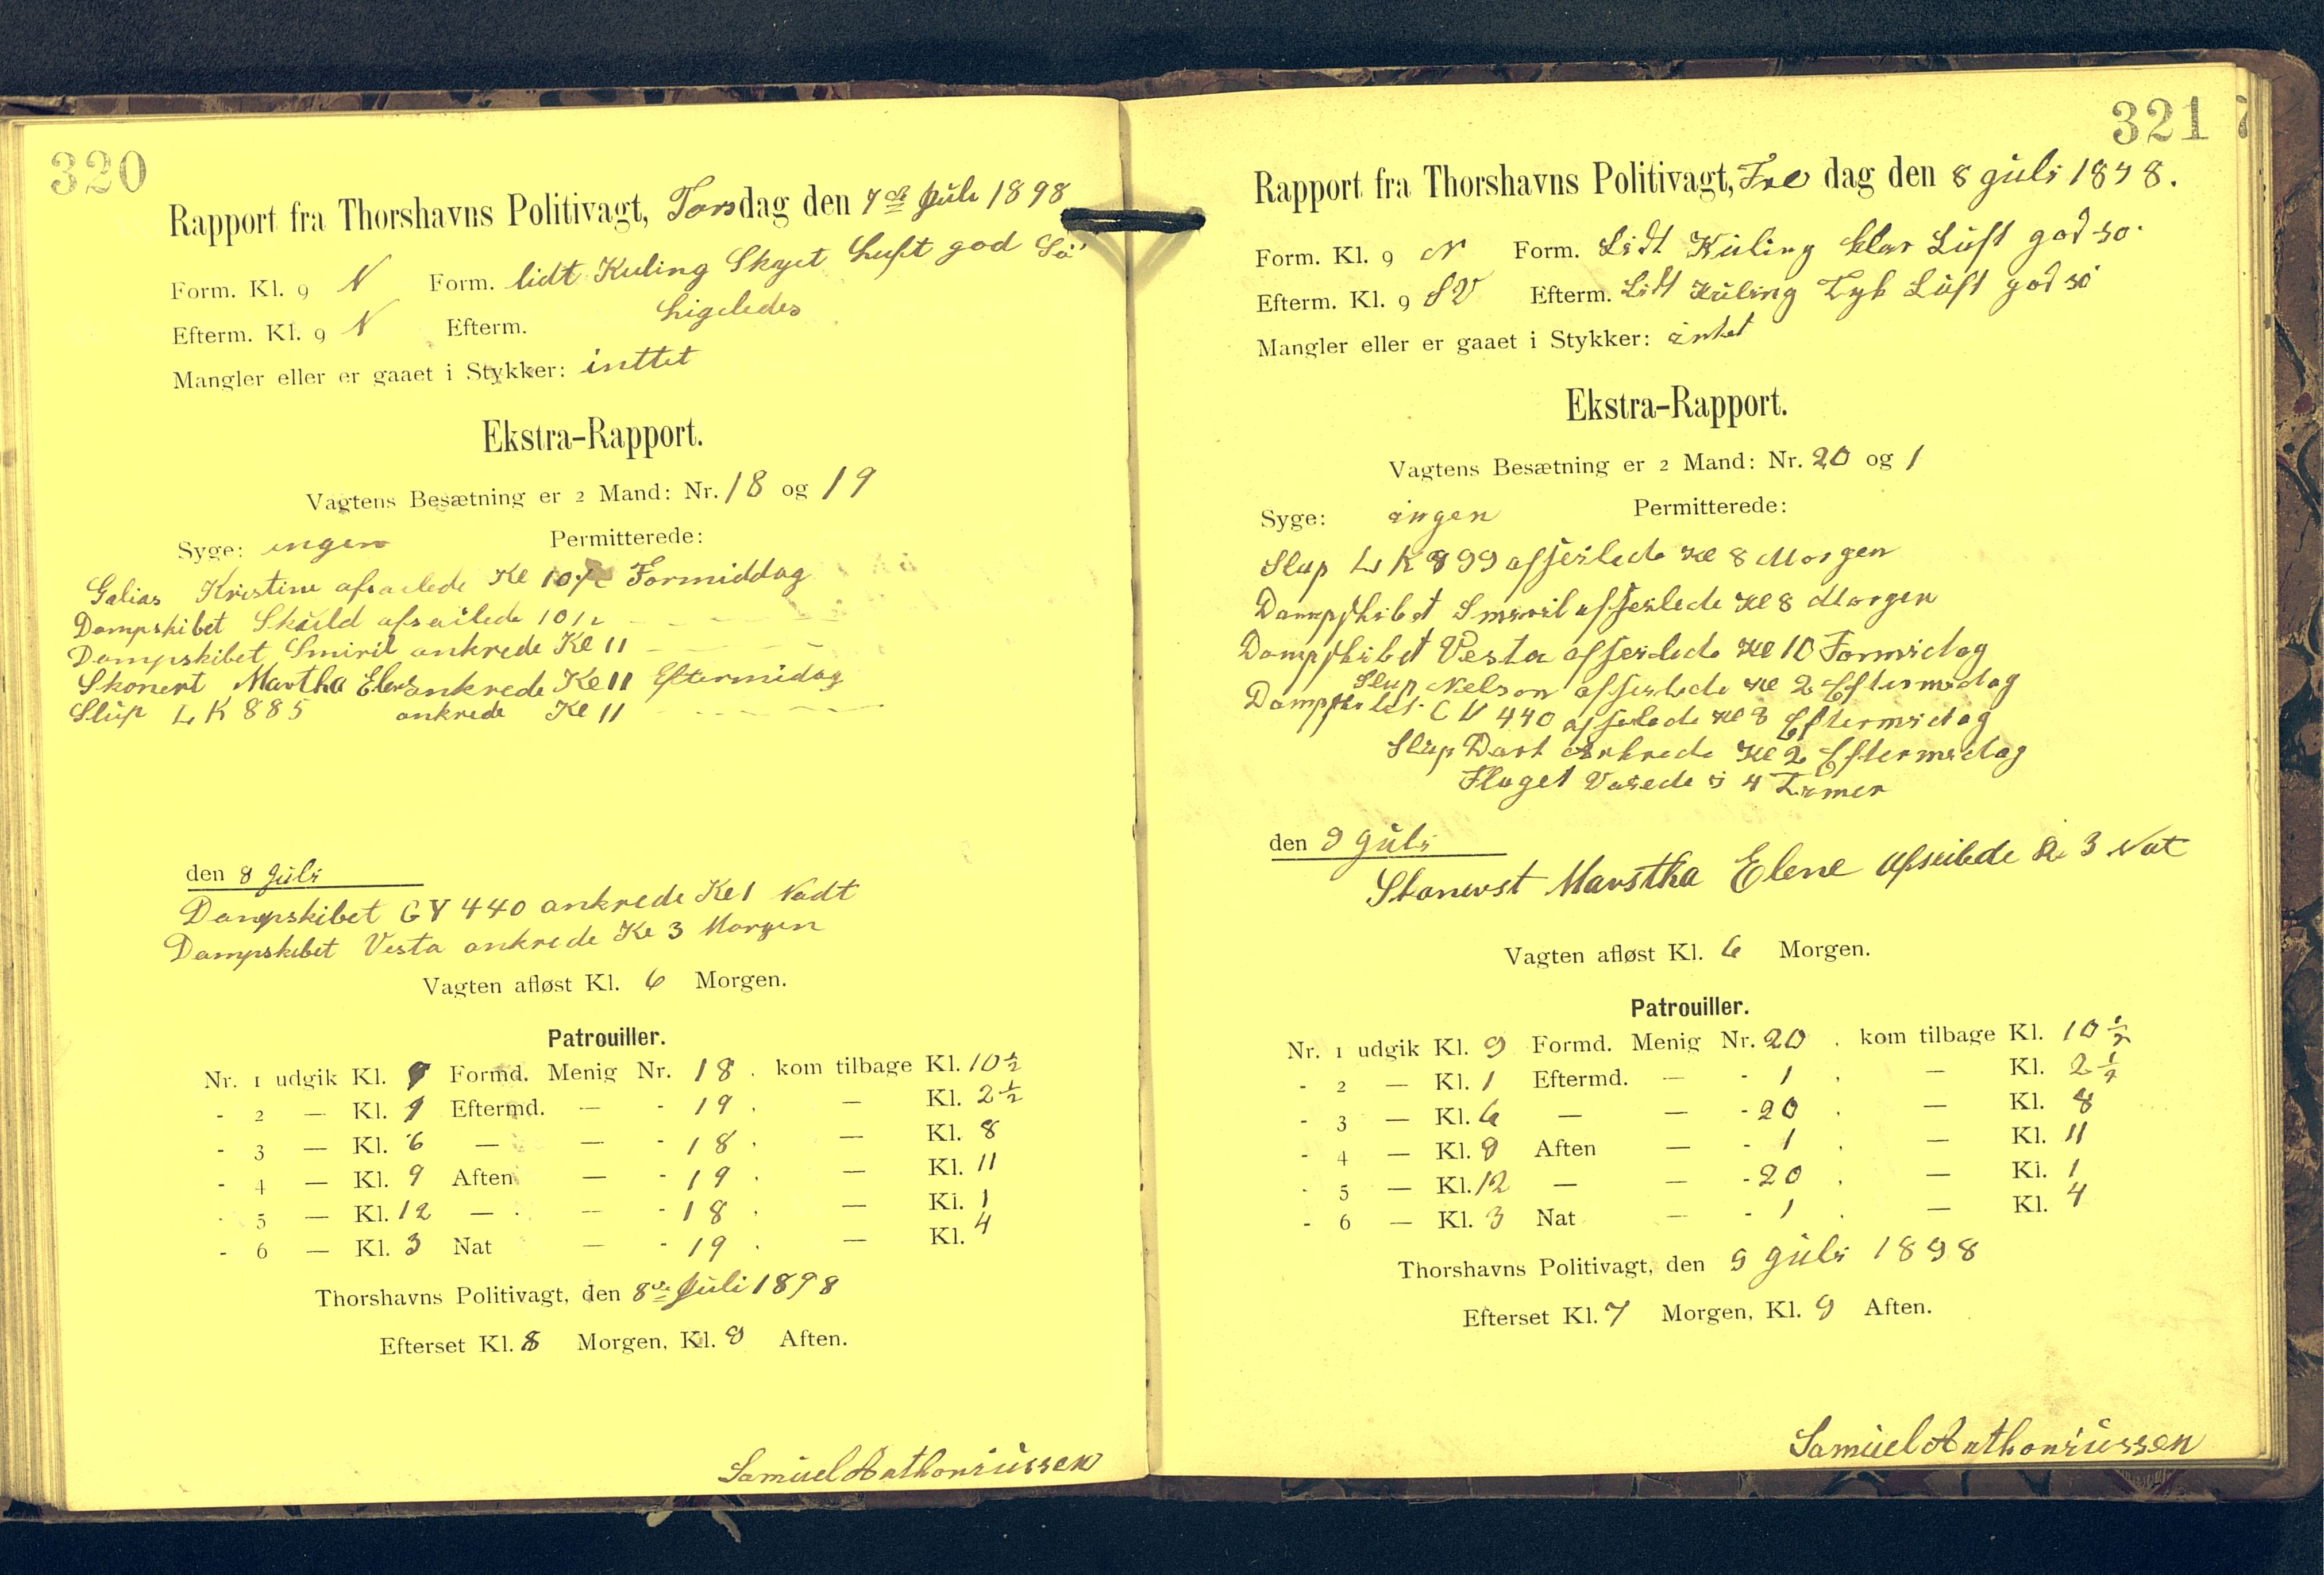 320
Rapport fra Thorshavns Politivagt, Torsdag den 7de Juli 1898
Form. Kl. 9 N Form. lidt Kuling Skyet Luft god Sö
Efterm. Kl. 9 N Efterm. Ligeledes
Mangler eller er gaaet i Stykker: inttet
Ekstra-Rapport.
Vagtens Besætning er 2 Mand: Nr. 18 og 19
Syge: ingen Permitterede:
Galias Kristine afsailede Kl 10½ Formiddag
Dampskibet Skúld afsailede 10½ — — — —
Dampskibet Smiril ankrede Kl 11 — — — —
Skonert Martha Elene ankrede Kl 11 Eftermidag
Slúp LK 885 ankrede Kl 11 — — — —
den 8 Júli
Dampskibet GY 440 ankrede Kl 1 Nadt
Dampskibet Vesta ankrede Kl 3 Morgen
Vagten afløst Kl. 6 Morgen.
Patrouiller.
Nr. 1 udgik Kl. 9 Formd. Menig Nr. 18 . kom tilbage Kl. 10½
- 2 — Kl. 1 Eftermd. — - 19 . — Kl. 2½
- 3 — Kl. 6 — — - 18 . — Kl. 8
- 4 — Kl. 9 Aften — - 19 . — Kl. 11
- 5 — Kl. 12 — — - 18 . — Kl. 1
- 6 — Kl. 3 Nat — - 19 . — Kl. 4
Thorshavns Politivagt, den 8de Júli 1898
Efterset Kl. 8 Morgen, Kl. 9 Aften.
Samúel Anthoniússen
321
Rapport fra Thorshavns Politivagt, Fre dag den 8 Júli 1898.
Form. Kl. 9 N Form. Lidt Kúling klar Lúft god sö
Efterm. Kl. 9 SV Efterm. Lidt Kúling Tyk Lúft god sö
Mangler eller er gaaet i Stykker: intet
Ekstra-Rapport.
Vagtens Besætning er 2 Mand: Nr. 20 og 1
Syge: ingen Permitterede:
Slup LK 899 afseilede Kl 8 Morgen
Dampskibet Smiril afseilede Kl 8 Morgen
Dampskibet Vesta afseilede Kl 10 Formidag
Slup Nelson afseilede Kl 2 Eftermidag
Dampskibet GV 440 afseilede Kl 8 Eftermidag
Slup Dart Ankrede Kl 2 Eftermidag
Flaget Vaiede i 4 Timer
den 9 Júli
Skonerst Marstha Elene afseilede Kl. 3 Nat
Vagten afløst Kl. 6 Morgen.
Patrouiller.
Nr. 1 udgik Kl. 9 Formd. Menig Nr. 20 . kom tilbage Kl. 10½
- 2 — Kl. 1 Eftermd. — - 1 . — Kl. 2½
- 3 — Kl. 6 — — - 20 . — Kl. 8
- 4 — Kl. 9 Aften — - 1 . — Kl. 11
- 5 — Kl. 12 — — - 20 . — Kl. 1
- 6 — Kl. 3 Nat — - 1 . — Kl. 4
Thorshavns Politivagt, den 9 Júli 1898
Efterset Kl. 7 Morgen, Kl. 9 Aften.
Samúel Anthoniússen